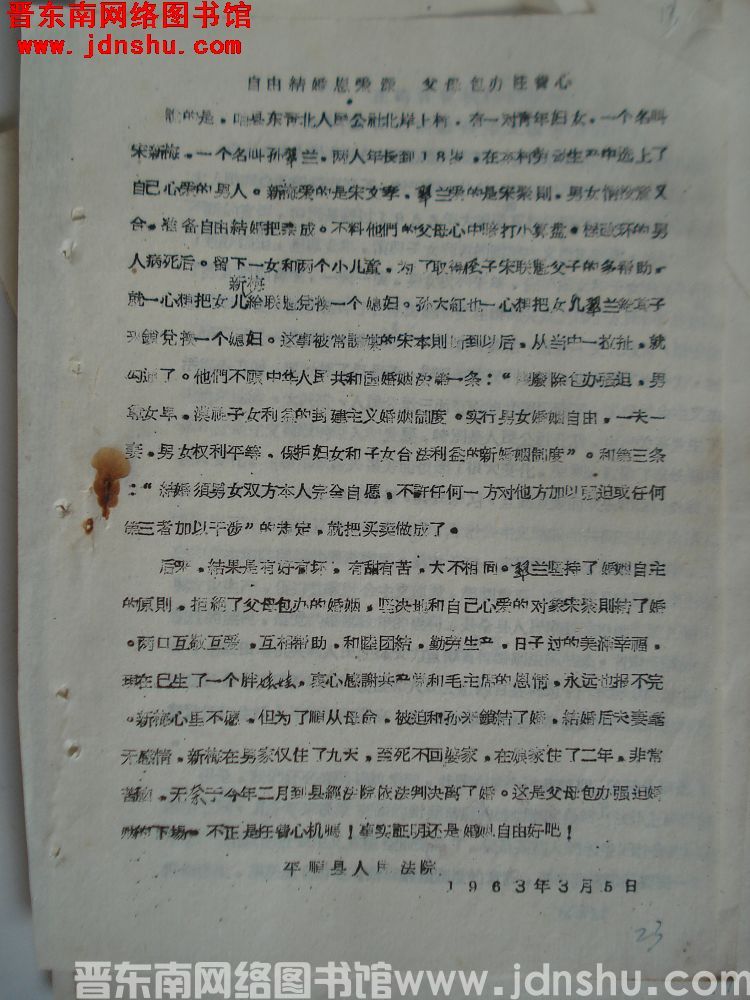 晋东南网络图书馆
www.jdnshu.com
13
自由結婚恩爱深 父母包办往费心
說的是,咱县东青北人民公社北岸上村,有一对青年妇女,一个名叫
宋新梅,一个名叫孙翠兰,两人年长到18岁,在本村劳动生产中选上了
自己心爱的男人。新梅爱的是宋文孝,翠兰爱的是宋聚則,男女情投意又
合,准备自由結婚把亲成。不料他們的父母心中暗打小算盘。 的男
人病死后。留下一女和两个小儿童,为了取得侄子宋联魁父子的多帮助,
新梅
就一心想把女儿給联魁兌换一个媳妇。孙大紅也一心想把女儿翠兰給孩子
米鎖兌换一个媳妇。这事被常說媒的宋本則听到以后,从当中一拉扯,就
勾通了。他們不顾中华人民共和国婚姻法第一条:“ 廢除包办强迫,男
尊女卑,漠視子女利益的封建主义婚姻制度。实行男女婚姻自由,一夫一
妻,男女权利平等,保护妇女和子女合法利益的新婚姻制度”。和第三条
:“結婚須男女双方本人完全自愿,不許任何一方对他方加以强迫或任何
第三者加以干涉”的规定,就把买卖做成了。
后来,結果是有好有坏,有甜有苦,大不相同。翠兰坚持了婚姻自主
的原則,拒絕了父母包办的婚姻,坚决地和自己心爱的对象宋聚則結了婚
。两口互敬互爱,互相帮助,和睦团結,勤劳生产,日子过的美滿幸福,
現在已生了一个胖娃娃,衷心感謝共产党和毛主席的恩情,永远也报不完
。新梅心里不愿,但为了順从母命,被迫和孙米鎖結了婚,結婚后夫妻毫
无感情。新梅在男家仅住了九天,至死不回婆家,在娘家住了二年,非常
苦恼,无奈于今年二月到县經法院依法判决离了婚。这是父母包办强迫婚
姻的下場。不正是往費心机嗎!事实証明还是婚姻自由好吧!
平順县人民法院
1963年3月5日
23
晋东南网络图书馆www.jdnshu.com